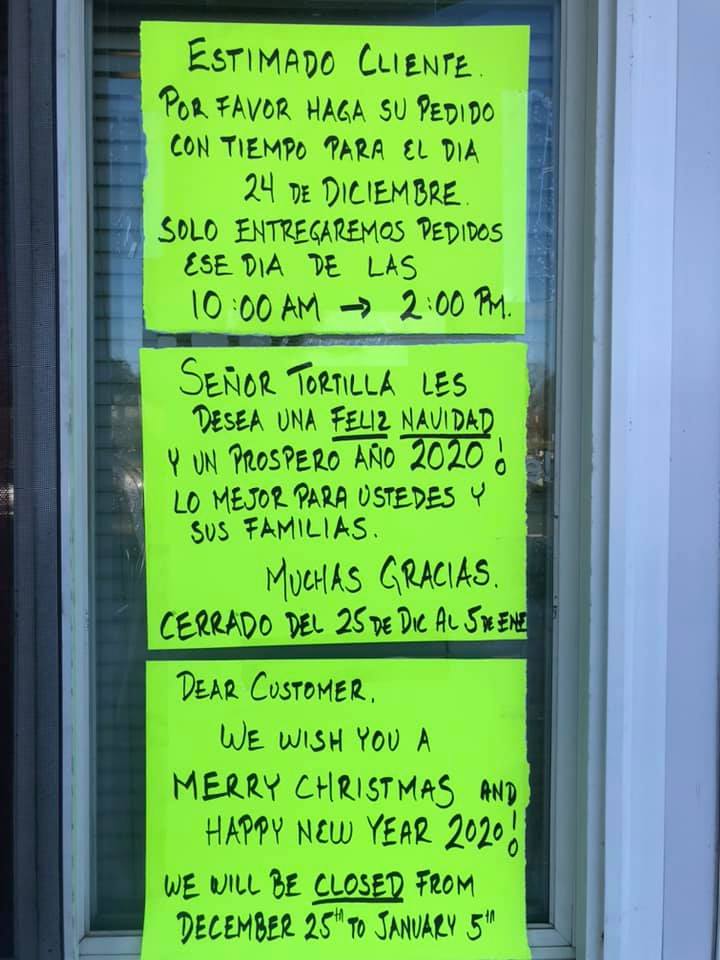 ESTIMADO CLIENTE.
POR FAVOR HAGA SU PEDIDO
CON TIEMPO PARA EL DIA
24 DE DICIEMBRE.
SOLO ENTREGAREMOS PEDIDOS
ESE DIA DE LAS
10:00 AM → 2:00 PM.
SEÑOR TORTILLA LES
DESEA UNA FELIZ NAVIDAD
Y UN PROSPERO AÑO 2020!
LO MEJOR PARA USTEDES Y
SUS FAMILIAS.
MUCHAS GRACIAS.
CERRADO DEL 25 DE DIC AL 5 DE ENE
DEAR CUSTOMER,
WE WISH YOU A
MERRY CHRISTMAS AND
HAPPY NEW YEAR 2020!
WE WILL BE CLOSED FROM
DECEMBER 25th TO JANUARY 5th